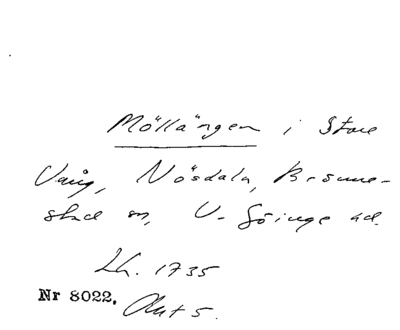 Möllängen i Store
Vång, Nösdala, Brönne-
stad sn, V-Göinge hd.
Lh. 1735
Nr 8022. Akt 5.